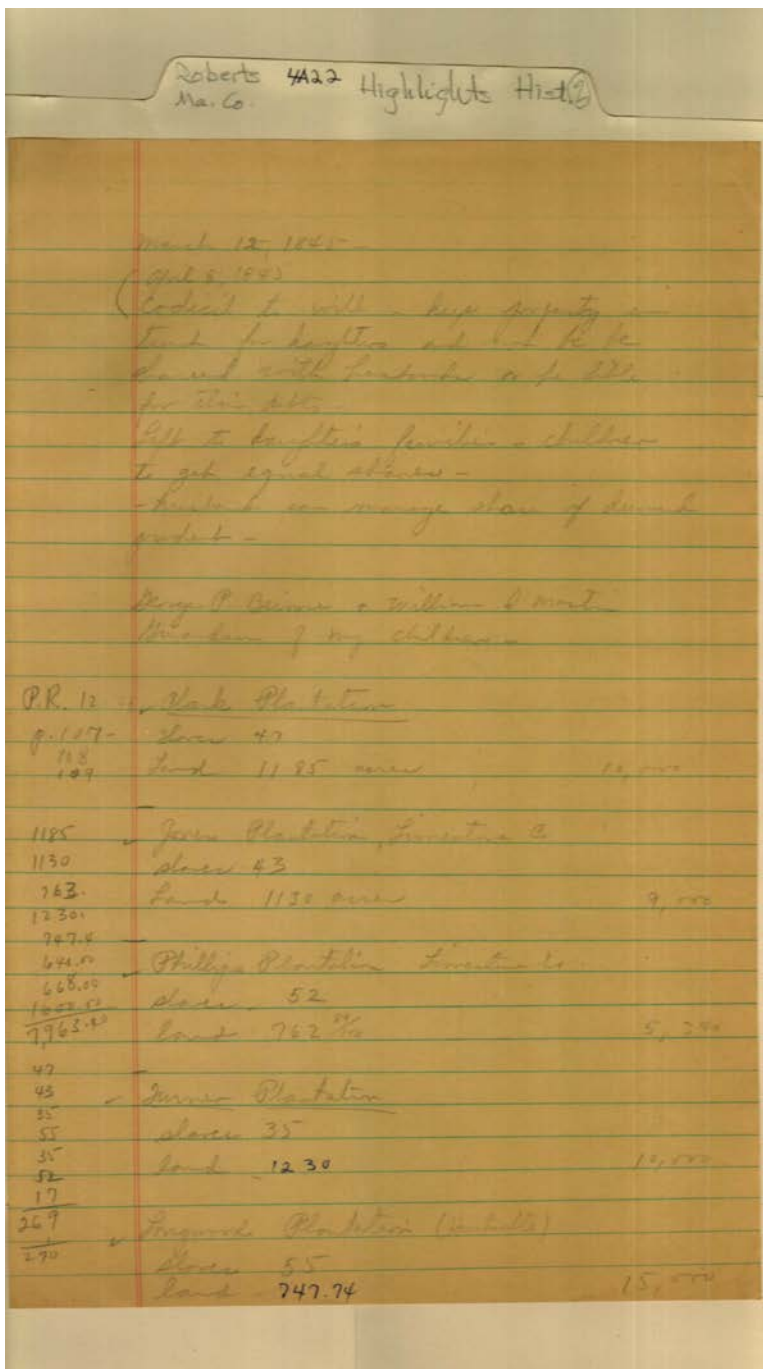 Roberts 4A22 Highlights Hist. 2
Ma. Co.
March 12, 1845 -
April 8, 1843
Codecil to will - keep property in
trust for daughters and not to be
shared with husbands or be
for their debts
Left to daughter's families - children
to get equal shares -
- husband can manage share of deceased
George P. Beirne & William
Guardians of my children
P.R. 12
p. 107 -
108
109
Plantation
slaves 47
Land 1185 acres 10,000
1185
1130
763.
1230.
747.4
640.00
668.00
7,963.40
Jones Plantation, Limestone C
slaves 43
Land 1130 acres 9,000
Phillips Plantation Limestone Co.
slaves 52
land 762
47
43
35
55
35
52
17
269
1
270
Turner Plantation
slaves 35
land 1230 10,000
Longwood Plantation (Huntsville)
Slaves 55
land 747.74 15,000